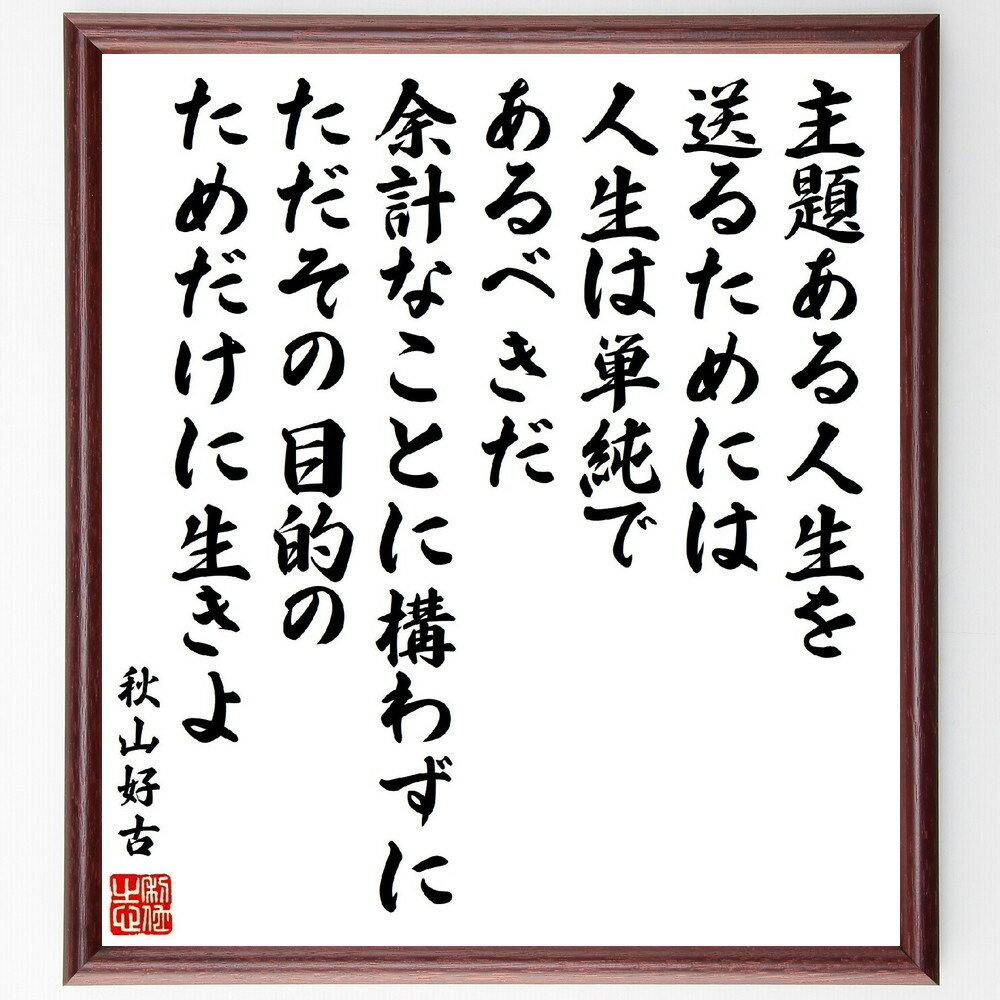 主題ある人生を
送るためには
人生は単純で
あるべきだ
余計なことに構わずに
ただその目的の
ためだけに生きよ
秋山好古